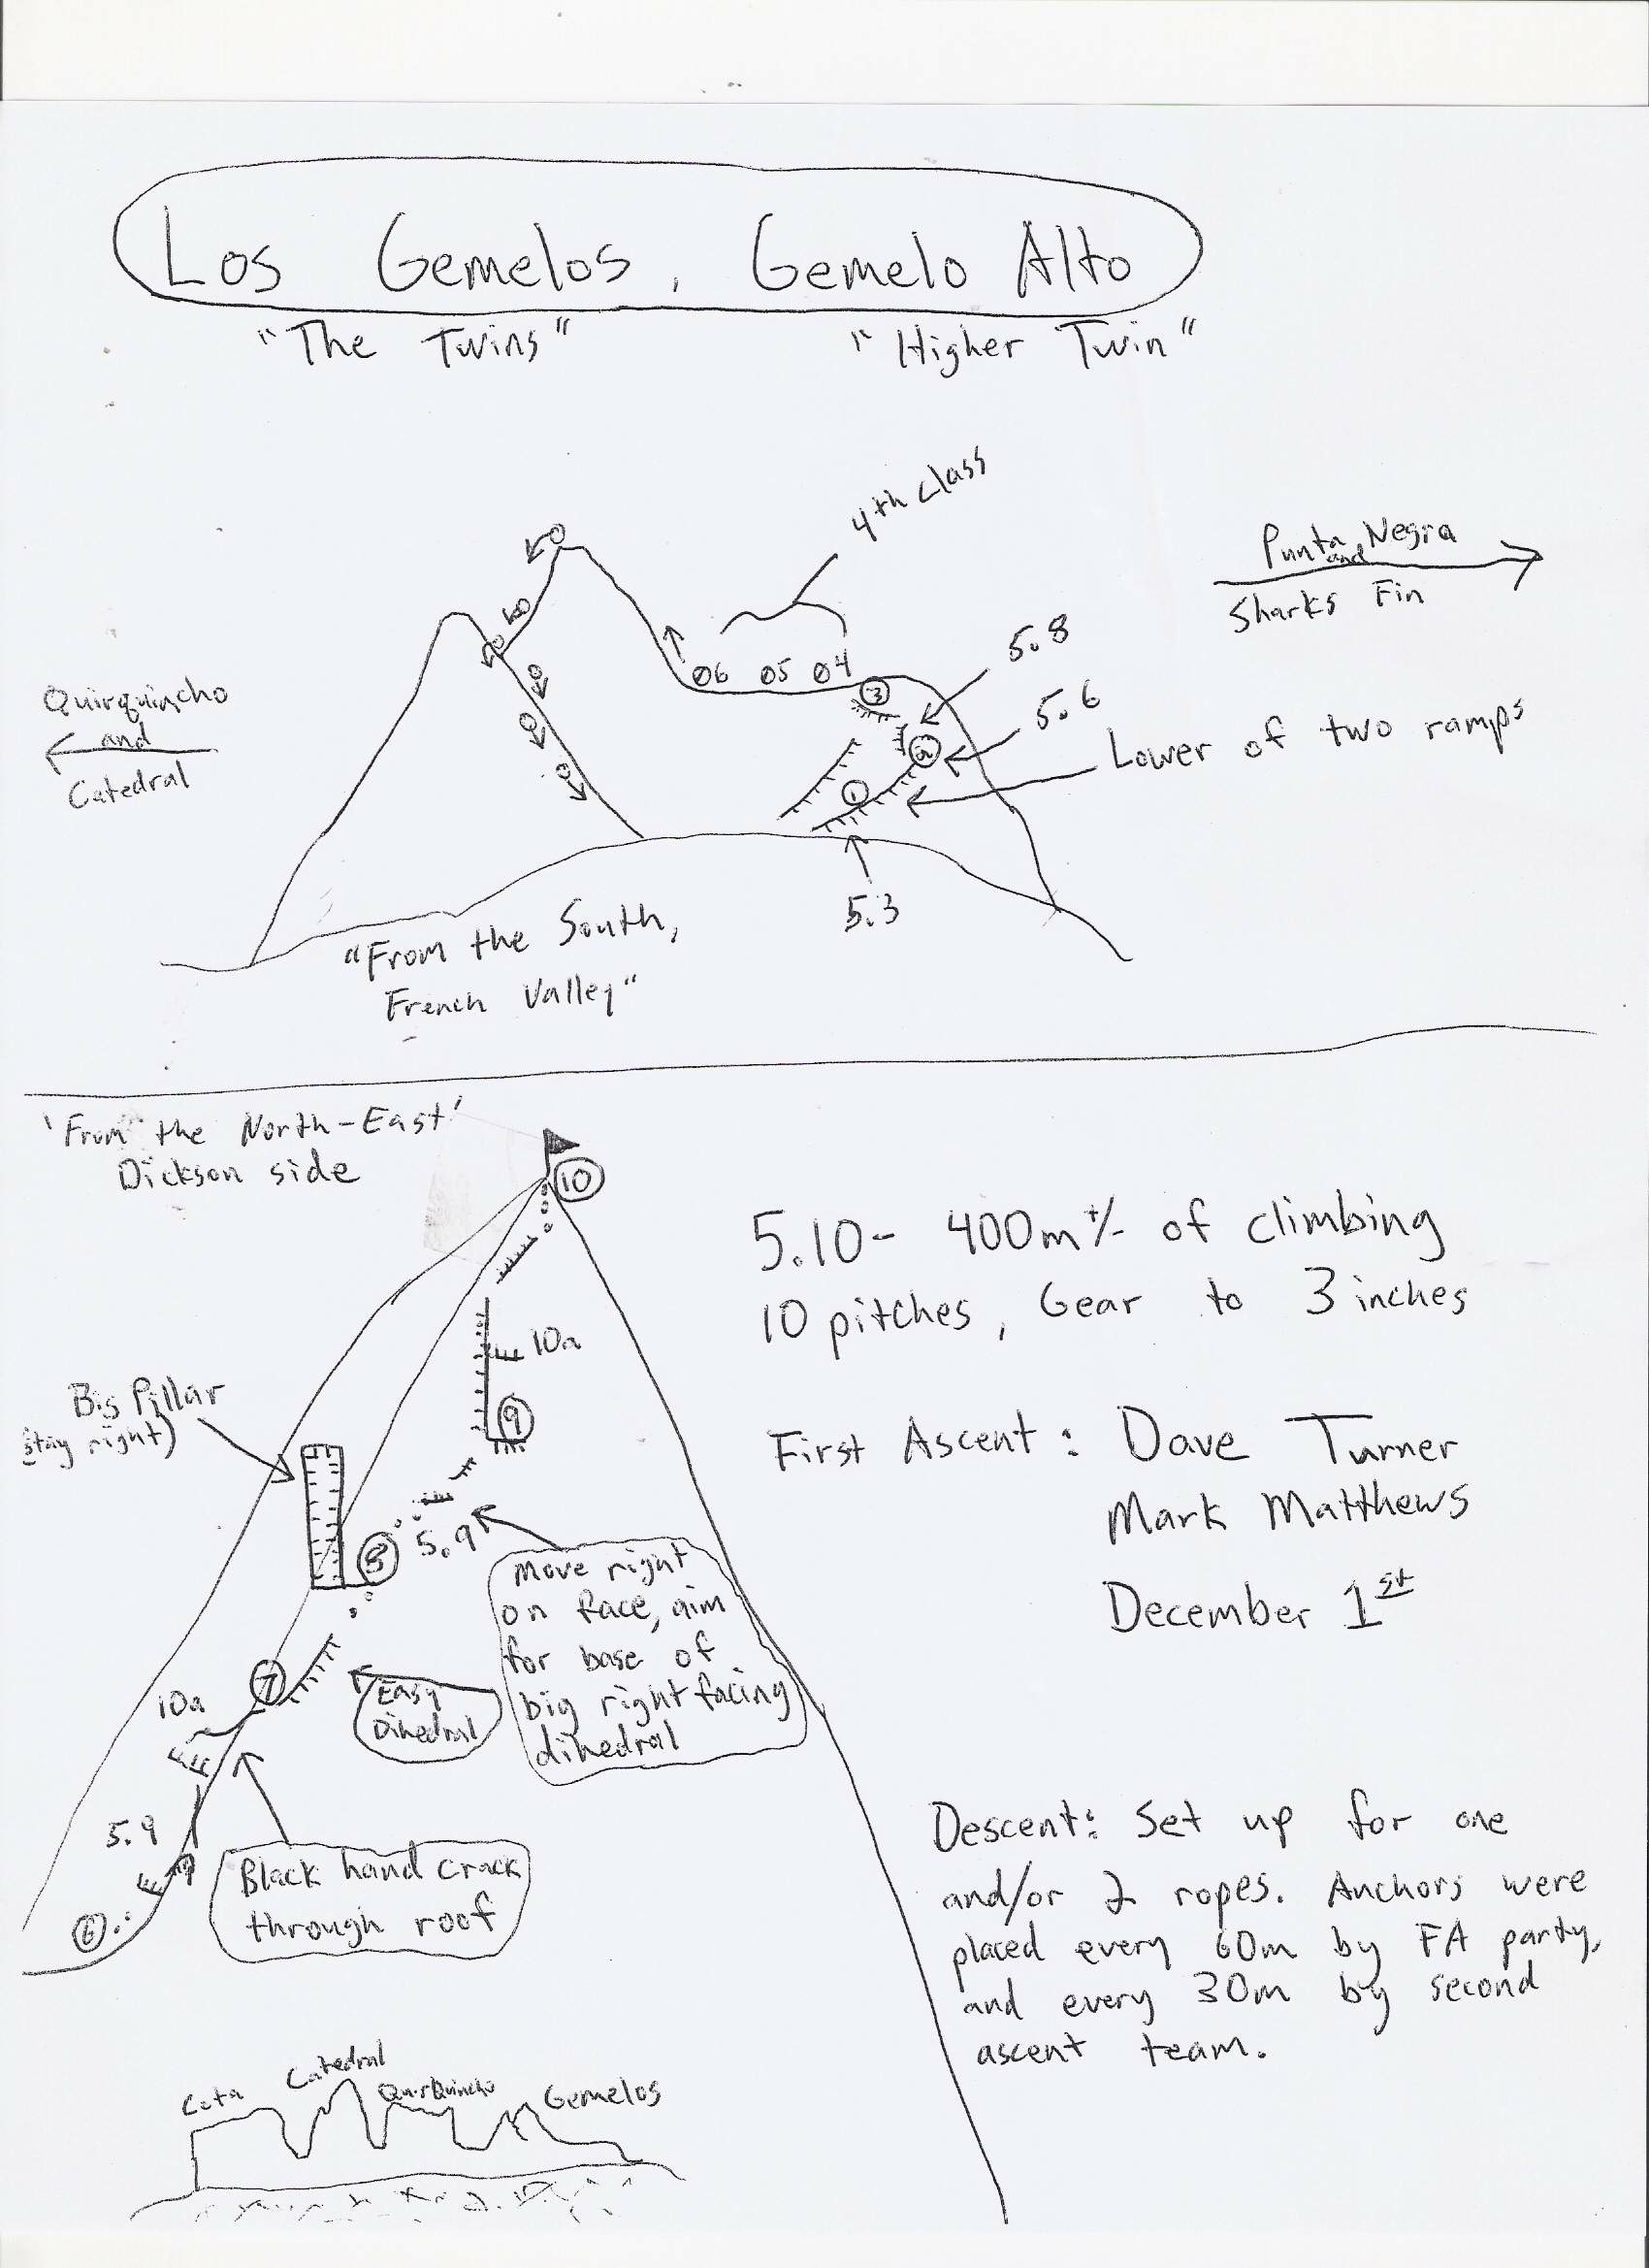 Los Gemelos, Gemelo Alto
"The Twins" "Higher Twin"
4th class
Punta Negra
and
Sharks Fin
5.8
5.6
Lower of two ramps
Quirquincho
and
Catedral
06 05 04
3
2
1
5.3
"From the South,
French Valley"
'From the North-East'
Dickson side
10
5.10- 400m+/- of climbing
10 pitches, Gear to 3 inches
10a
Big Pillar
(stay right)
9
First Ascent: Dave Turner
Mark Matthews
December 1st
8
5.9
Move right
on face, aim
for base of
big right facing
dihedral
7
Easy
Dihedral
10a
5.9
Black hand crack
through roof
6
Descent: Set up for one
and/or 2 ropes. Anchors were
placed every 60m by FA party,
and every 30m by second
ascent team.
Cota Catedral QuirQuincho Gemelos